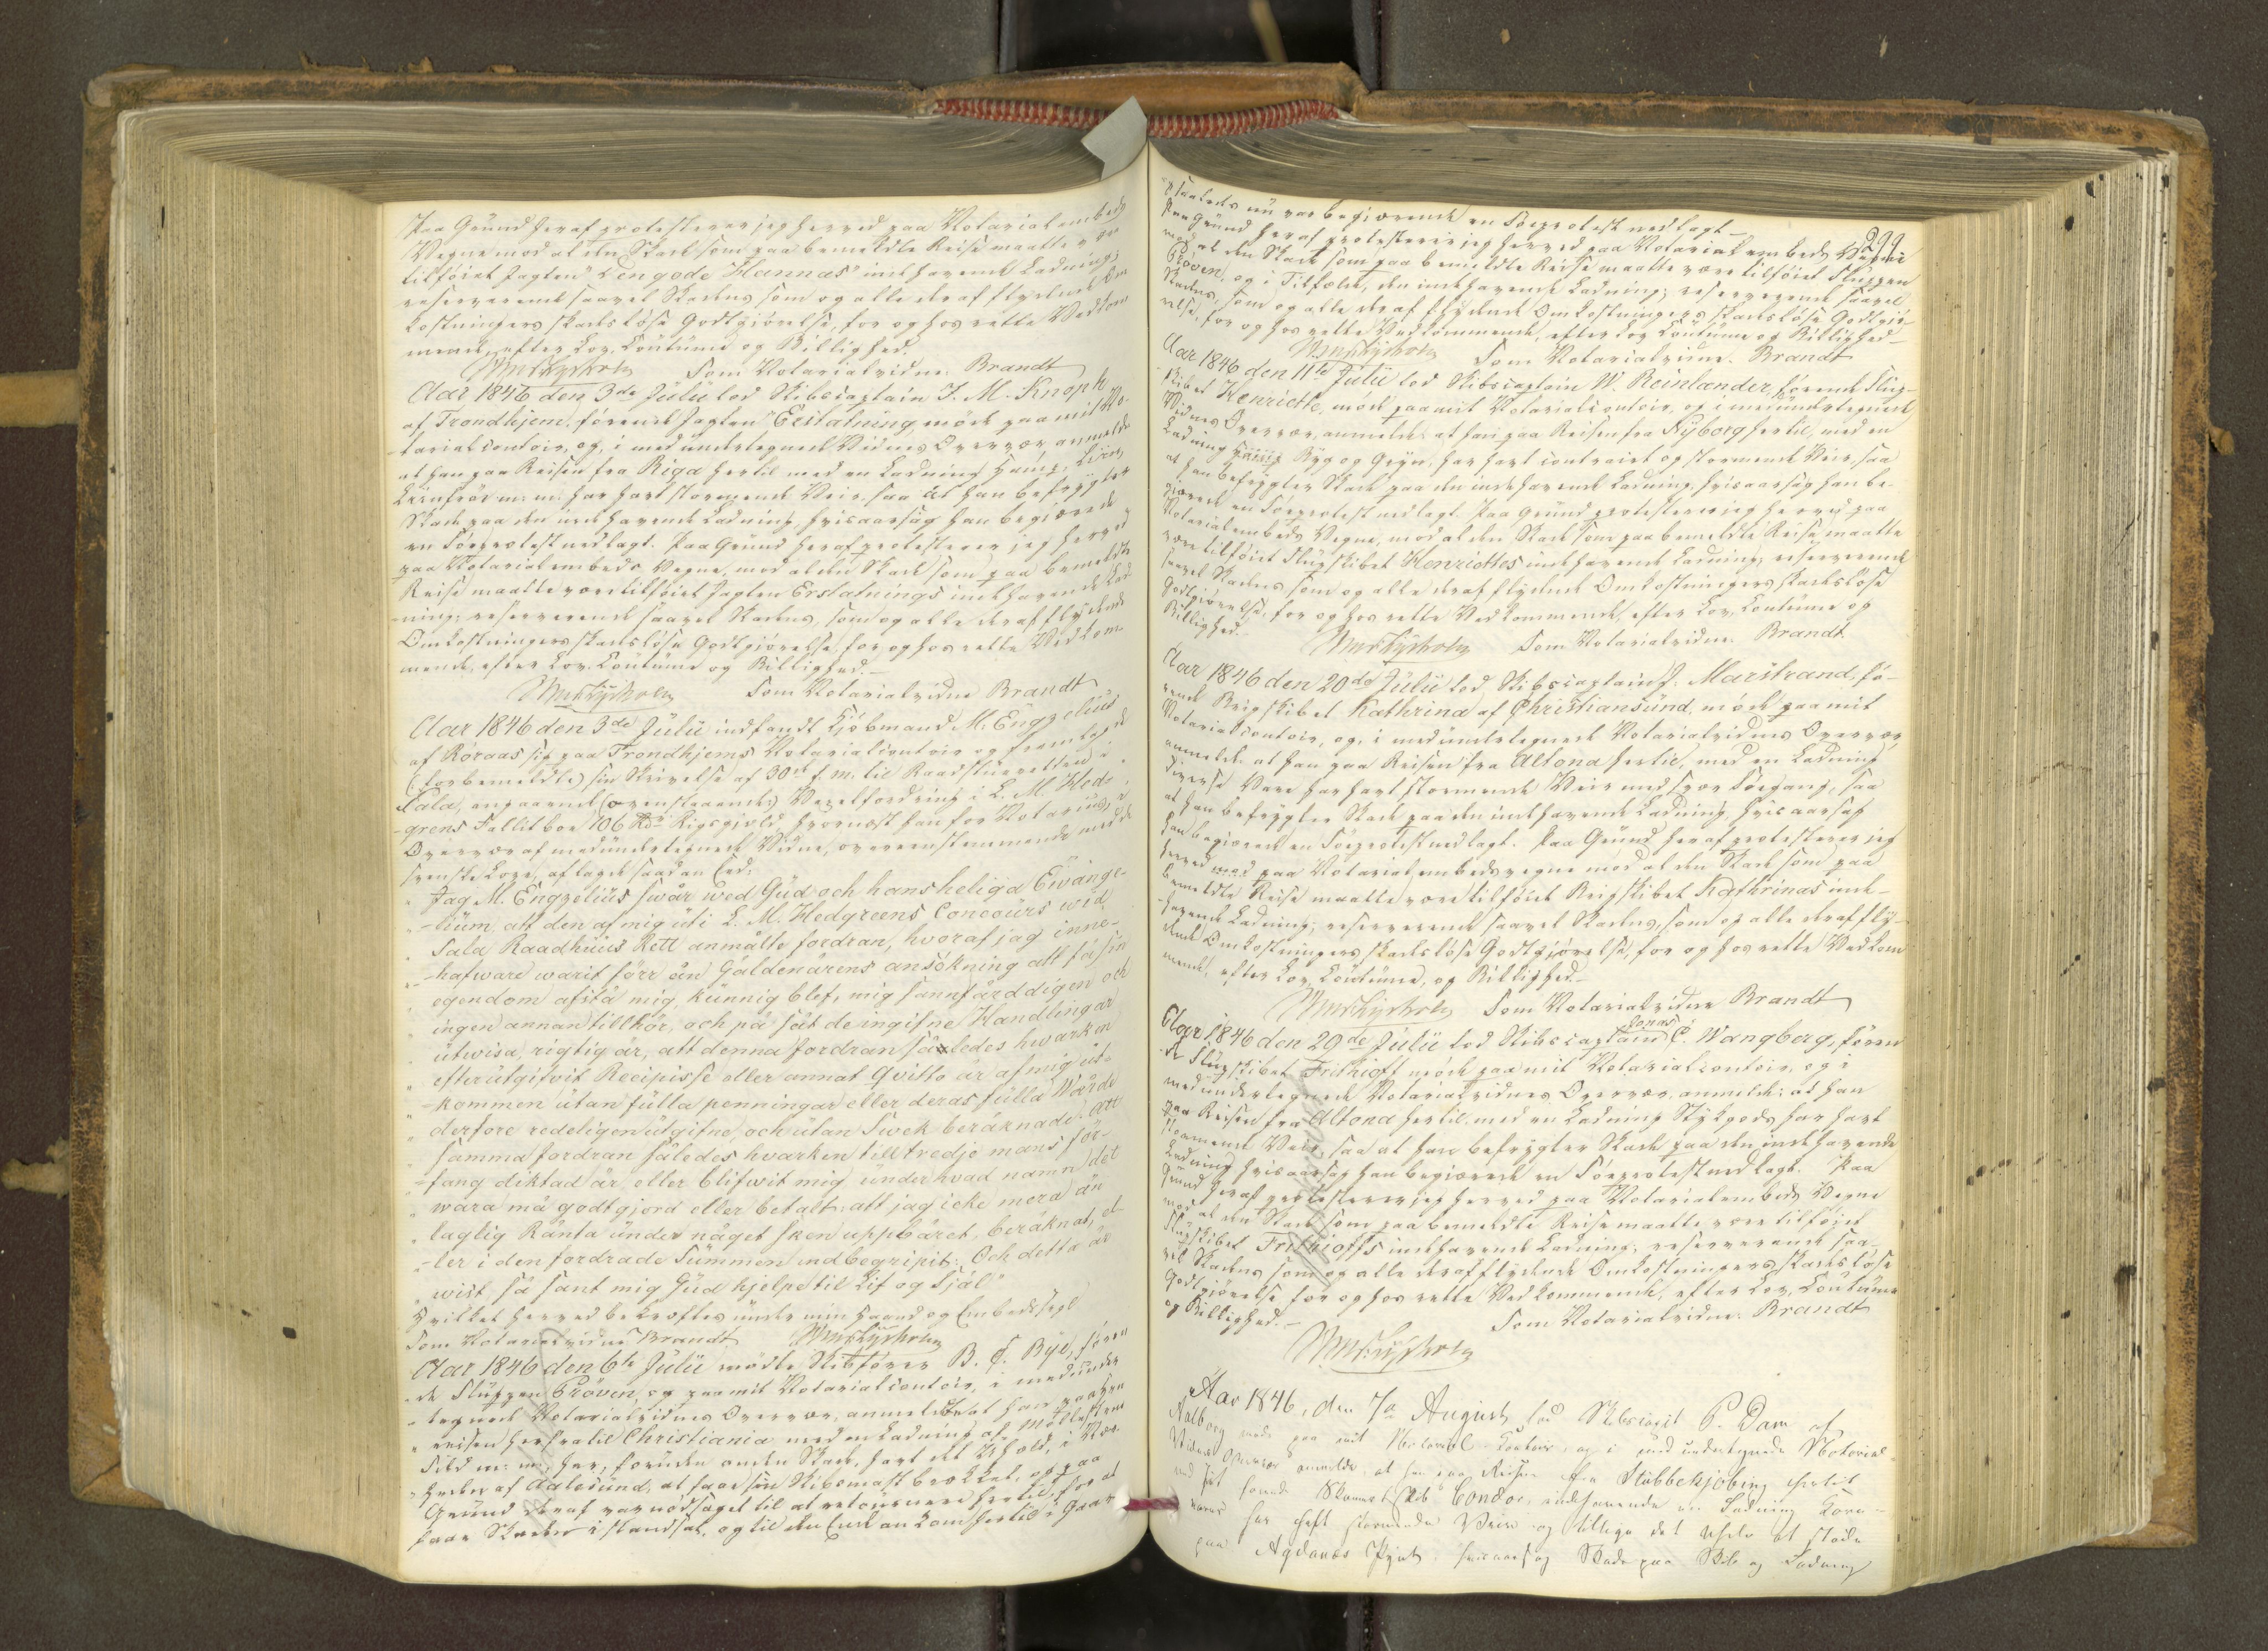 Paa Grund heraf protesterer jeg herved paa Notarialembeds
Vegne mod al den Skade som paa bemeldte Reise maatte være
tilføiet Jagten "Den gode Hannas" indehavende Ladning;
reserverende saavel Skadens som og alle deraf flydende Om
kostningers skadesløse Godtgjørelse, for og hos rette Vedkom
mende, efter Lov, Coutume og Billighed.
Som Notarialvidne. Brandt
Aar 1846 den 3de Julii lod Skibscaptain J. M. Knoph
af Trondhjem, førende Jagten "Erstatning, møde paa mit No-
tarialcontoir, og, i medundertegnede Vidnes Overvær, anmelde
at han paa Reisen fra Riga hertil med en Ladning Hamp, Liin,
Liinfrøe m: m: har havt stormende Veir, saa at han befrygter
Skade paa den indehavende Ladning, hvisaarsag han begjærede
en Søeprotest nedlagt. Paa Grund heraf protesterer jeg herved
paa Notarialembeds Vegne, mod al den Skade som paa bemeldte
Reise maatte være tilføiet Jagten Erstatnings indehavende Lad-
ning; reserverende saavel Skadens, som og alle deraf flydende
Omkostningers skadesløse Godtgjørelse, for og hos rette Vedkom
mende, efter Lov, Coutume og Billighed.-
Som Notarialvidne Brandt
Aar 1846 den 3de Julii indfandt Kjøbmand M. Engzelius
af Røraas sig paa Trondhjems Notarialcontoir og fremlagde
(forbemeldte) sin Skrivelse af 30te f. m. til Raadstueretten i
Sala, angaaende (ovenstaaende) Vexelfordring i L. M. Hed-
grens Fallitboe 106 Rdr Rigsgjeld, hvornæst han for Notarius, i
Overvær af medundertegnede Vidne, overeensstemmende med de
svenske Love, aflagde saadan Eed:
" Jag M. Engzelius swår wed Gud och hans heliga Ewange-
" -lium, att den af mig uti L. M. Hedgreens Concours wid
" Sala Raadhuus Rett anmålte fordran, hvoraf jag inne-
" -hafware warit förr ån Gäldenårens ansökning att få sin
" egendom afstå mig kunnig blef, mig sannfårddigen och
" ingen annan tillhör, och på såt de ingifne Handlingar
" utwisa, rigtig är, att denna fordran således hwarken
" efter utgifvit Recipisse eller annat Qvitto ar af mig ut-
" -kommen utan fulla penningar eller deras fulla Wårde
" derfore redeligen utgifne, och utan Swek beråknade: Att
" samma fordran således hvarken till tredje mans för-
" -fang diktad är, eller blifwit mig under hvad namn det
" wara må godtgjord eller betalt: att jag icke mera än
" laglig Rånta under någet sken uppbåret, beräknat, el-
" -ler i den fordrade Summen indbegripit: Och detta är
" wist, så sant mig Gud hjelpe til Lif og Sjål"
Hvilket herved bekræftes under min Haand og Embedssegl
Som Notarialvidne Brandt
Aar 1846 den 6te Julii mødte Skibsfører B. C. Bye, føren
de Sluppen Prøven, og paa mit Notarialcontoir, i medunder
tegnede Notarialvidnes Overvær, anmeldte at han paa sin
reisen herfra til Christiania med en Ladning af Møllestene
Sild m: m: har, foruden anden Skade, havt det Uheld, i Nær
heden af Aalesund, at faae sin Skibsmast brækket, og paa
Grund deraf var nødsaget til at retournere hertil, for at
faae Skaden istandsat, og til den Ende ankom hertil i Gaar
299
saaledes nu var begjærende en Søeprotest nedlagt-
Paa Grund heraf protesterer jeg herved paa Notarialembeds Vegne
mod al den Skade som paa bemeldte Reise maatte være tilføiet Sluppen
Prøven, og i Tilfælde, den indehavende Ladning; reserverende saavel
Skadens, som og alle deraf flydende Omkostningers skadesløse Godtgjø-
relse, for og hos rette Vedkommende, efter Lov Coutume og Billighed-
Som Notarialvidne. Brandt
Aar 1846 den 11te Julii lod Skibscaptain W. Reinlander, førende Slup-
skibet Henriette, møde paa mit Notarialcontoir, og i medundertegnede
Vidnes Overvær, anmelde: at han paa Reisen fra Nyborg hertil, med en
Ladning Byg og Gryn, har havt contrairt og stormende Veir, saa
at han befrygter Skade paa den indehavende Ladning, hvisaarsag han be-
gjærede en Søeprotest nedlagt. Paa Grund protesterer jeg herved paa
Notarialembeds Vegne, mod al den Skade som paa bemeldte Reise maatte
være tilføiet Slupskibet Henriettes indehavende Ladning; reserverende
saavel Skadens som og alle deraf flydende Omkostningers skadesløse
Godtgjørelse, for og hos rette Vedkommende, efter Lov, Coutume og
Billighed.-
Som Notarialvidne. Brandt.
Aar 1846 den 20de Julii lod Skibscaptain J. Marstrand, fø-
rende Brigskibet Kathrina af Christiansund, møde paa mit
Notarialcontoir, og, i medundertegnede Notarialvidnes Overvær,
anmelde: at han paa Reisen fra Altona hertil, med en Ladning
diverse Vare har havt stormende Veir med svær Søegang, saa
at han befrygter Skade paa den indehavende Ladning, hvisaarsag
han begjærede en Søeprotest nedlagt. Paa Grund heraf protesterer jeg
herved mod paa Notarialembeds vegne mod al den Skade som paa
bemeldte Reise maatte være tilføiet Brigskibet Kathrinas inde-
havende Ladning; reserverende saavel Skadens, som og alle deraf fly-
dende Omkostningers skadesløse Godtgjørelse, for og hos rette Vedkom
mende, efter Lov, Coutume, og Billighed.-
Som Notarialvidne Brandt
Jonas
Aar 1846 den 29de Julii lod Skibscaptain C. Wangberg, føren
de Slupskibet Frithioff møde paa mit Notarialcontoir, og i
medundertegnede Notarialvidnes Overvær, anmelde: at han
paa Reisen fra Altona hertil, med en Ladning Stykgods har havt
stormende Veir, saa at han befrygter Skade paa den indehavende
Ladning, hvisaarsag han begjærede en Søeprotest nedlagt. Paa
Grund heraf protesterer jeg herved paa Notarialembeds Vegne
mod al den Skade som paa bemeldte Reise maatte være tilføiet
Slupskibet Frithioffs indehavende Ladning; reserverende saa-
vel Skadens som og alle deraf flydende Omkostningers skadesløse
Godtgjørelse for og hos rette Vedkommende, efter Lov, Coutume
og Billighed.-
Som Notarialvidne. Brandt
Aar 1846, den 7de August lod Skibscapit P. Dam af
Aalborg møde paa mit Notarial-Contoir, og i medundertegnede Notarial
Vidnes Overvær anmelde, at han paa Reisen fra Stubbekjøbing hertil
med sit førende Skonnertskib Condor, indehavende en Ladning Korn-
varer har havt stormende Veir og tillige det Uheld at støde
paa Agdanæs Pynt, hvisaarsag Skade paa Skib og Ladning